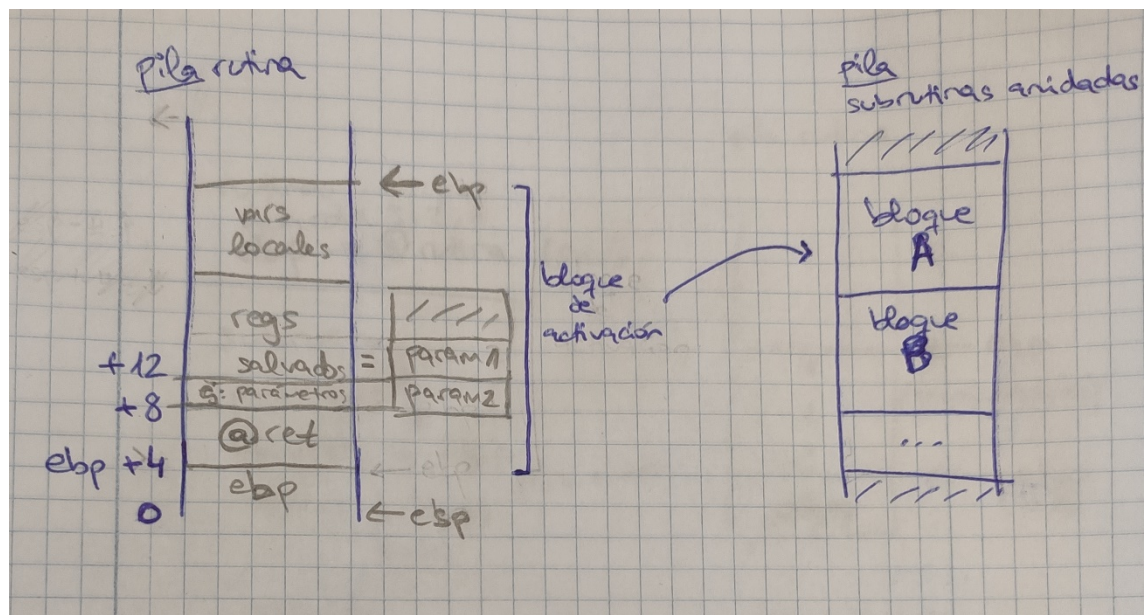 pila rutina
← ebp
vars
locales
regs
salvados
=
param 1
param 2
parámetros
@ret
ebp
← esp
+12
+8
ebp +4
0
bloque
de
activación
pila
subrutinas anidadas
bloque
A
bloque
B
...